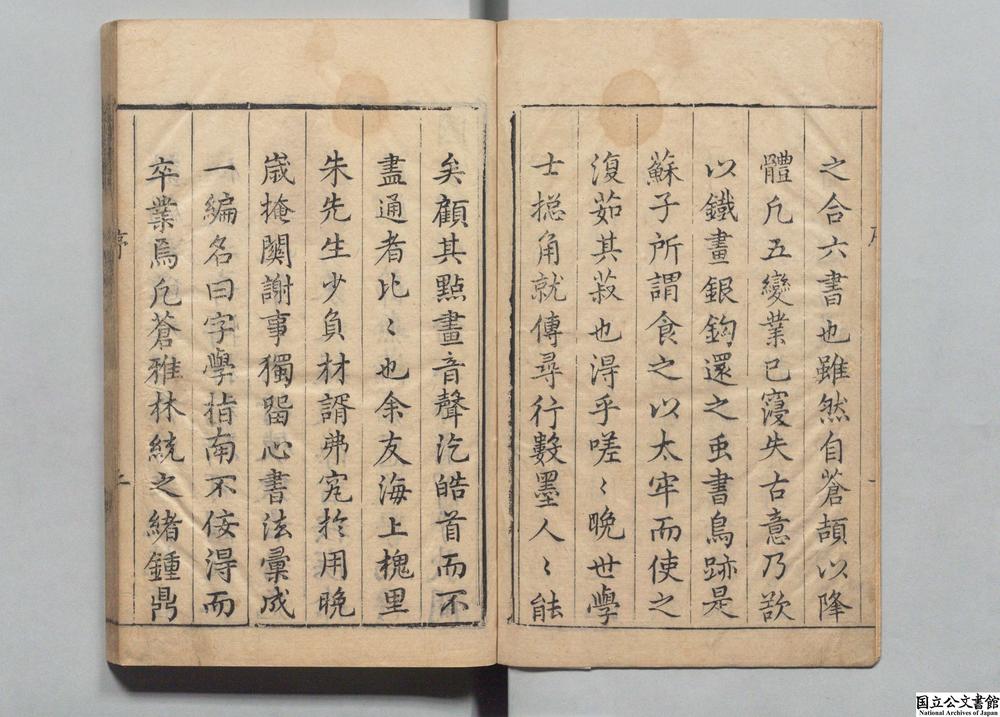 之合六書也雖然自蒼頡以降
體凢五變業已寖失古意乃欲
以鐵畫銀鈎還之虫書鳥跡是
蘇子所謂食之以太牢而使之
復茹其菽也淂乎嗟〻晚世學
士捴角就傳尋行數墨人〻能
矣顧其點畫音聲汔皓首而不
盡通者比〻也余友海上槐里
朱先生少負材諝弗究於用晚
歳掩關謝事獨留心書法彙成
一編名曰字學指南不佞淂而
卒業焉凢蒼雅林統之緒鍾鼎
序
二
国立公文書館
National Archives of Japan